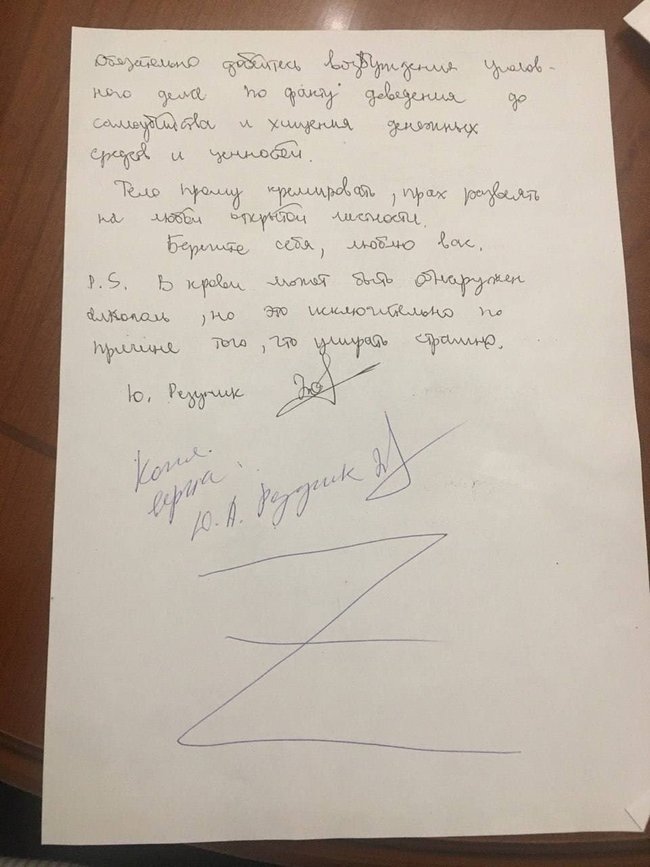 Обязательно добейтесь возбуждения уголов-
ного дела по факту доведения до
самоубийства и хищения денежных
средств и ценностей.
Тело прошу кремировать, прах развеять
на любой открытой местности.
Берегите себя, люблю вас.
P.S. В крови может быть обнаружен
алкоголь, но это исключительно по
причине того, что умирать страшно.
Ю. Резучик
Копия
верна.
Ю. А. Резучик